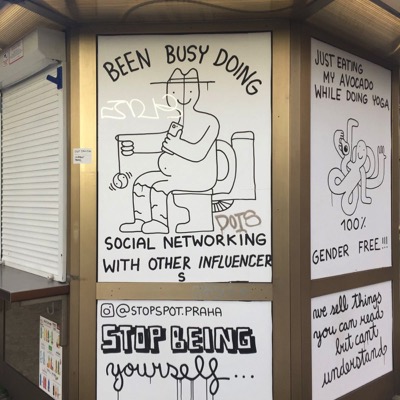 BEEN BUSY DOING
DOTS
SOCIAL NETWORKING
WITH OTHER INFLUENCER
S
@STOPSPOT.PRAHA
STOP BEING
yourself...
JUST EATING
MY AVOCADO
WHILE DOING YOGA
100%
GENDER FREE!!!
we sell things
you can read
but can't
understand